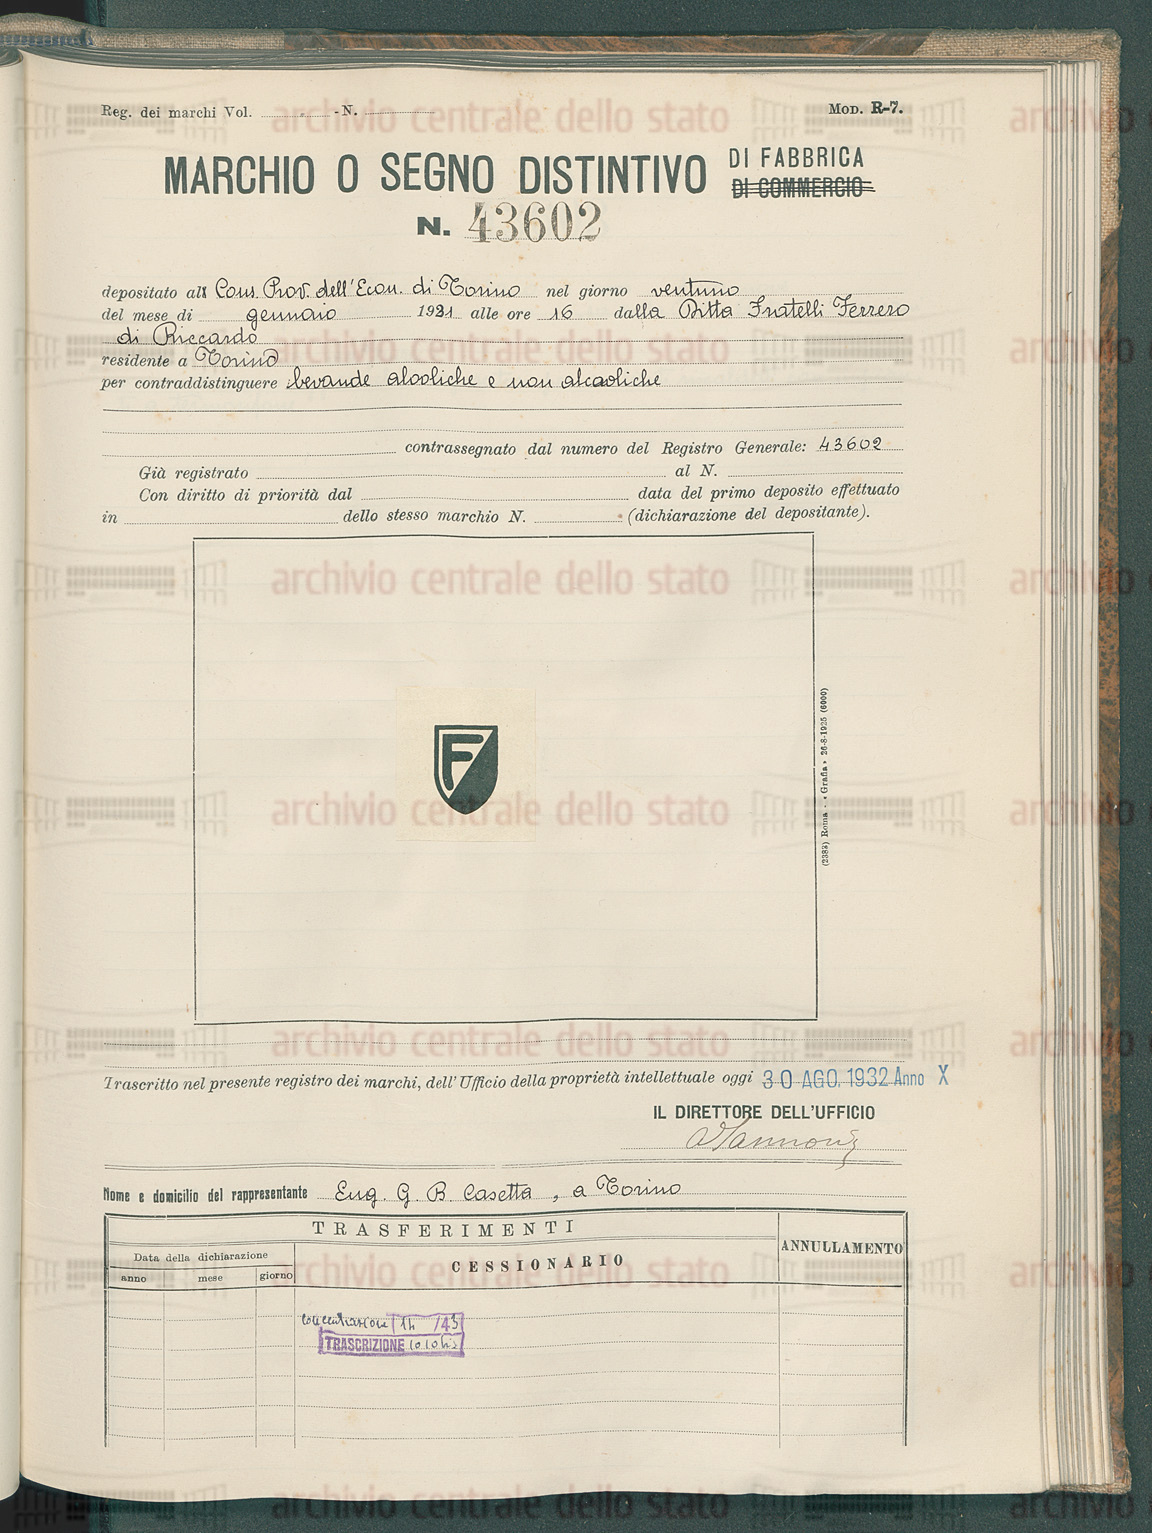 Reg. dei marchi Vol. - N.
MOD. R-7.
MARCHIO O SEGNO DISTINTIVO DI FABBRICA
DI COMMERCIO
N. 43602
depositato al Cons. Prov. dell'Econ. di Torino nel giorno ventuno
del mese di gennaio 1931 alle ore 16 dalla Ditta Fratelli Ferrero
di Riccardo
residente a Torino
per contraddistinguere bevande alcoliche e non alcooliche
contrassegnato dal numero del Registro Generale: 43602
Già registrato al N.
Con diritto di priorità dal data del primo deposito effettuato
in dello stesso marchio N. (dichiarazione del depositante).
F
(2383) Roma - « Grafia » 26-8-1925 (6000)
Trascritto nel presente registro dei marchi, dell'Ufficio della proprietà intellettuale oggi 30 AGO. 1932 Anno X
IL DIRETTORE DELL'UFFICIO
Nome e domicilio del rappresentante Eug. G. B. Casetta, a Torino
TRASFERIMENTI
ANNULLAMENTO
Data della dichiarazione
CESSIONARIO
anno mese giorno
/43
TRASCRIZIONE
archivio centrale dello stato